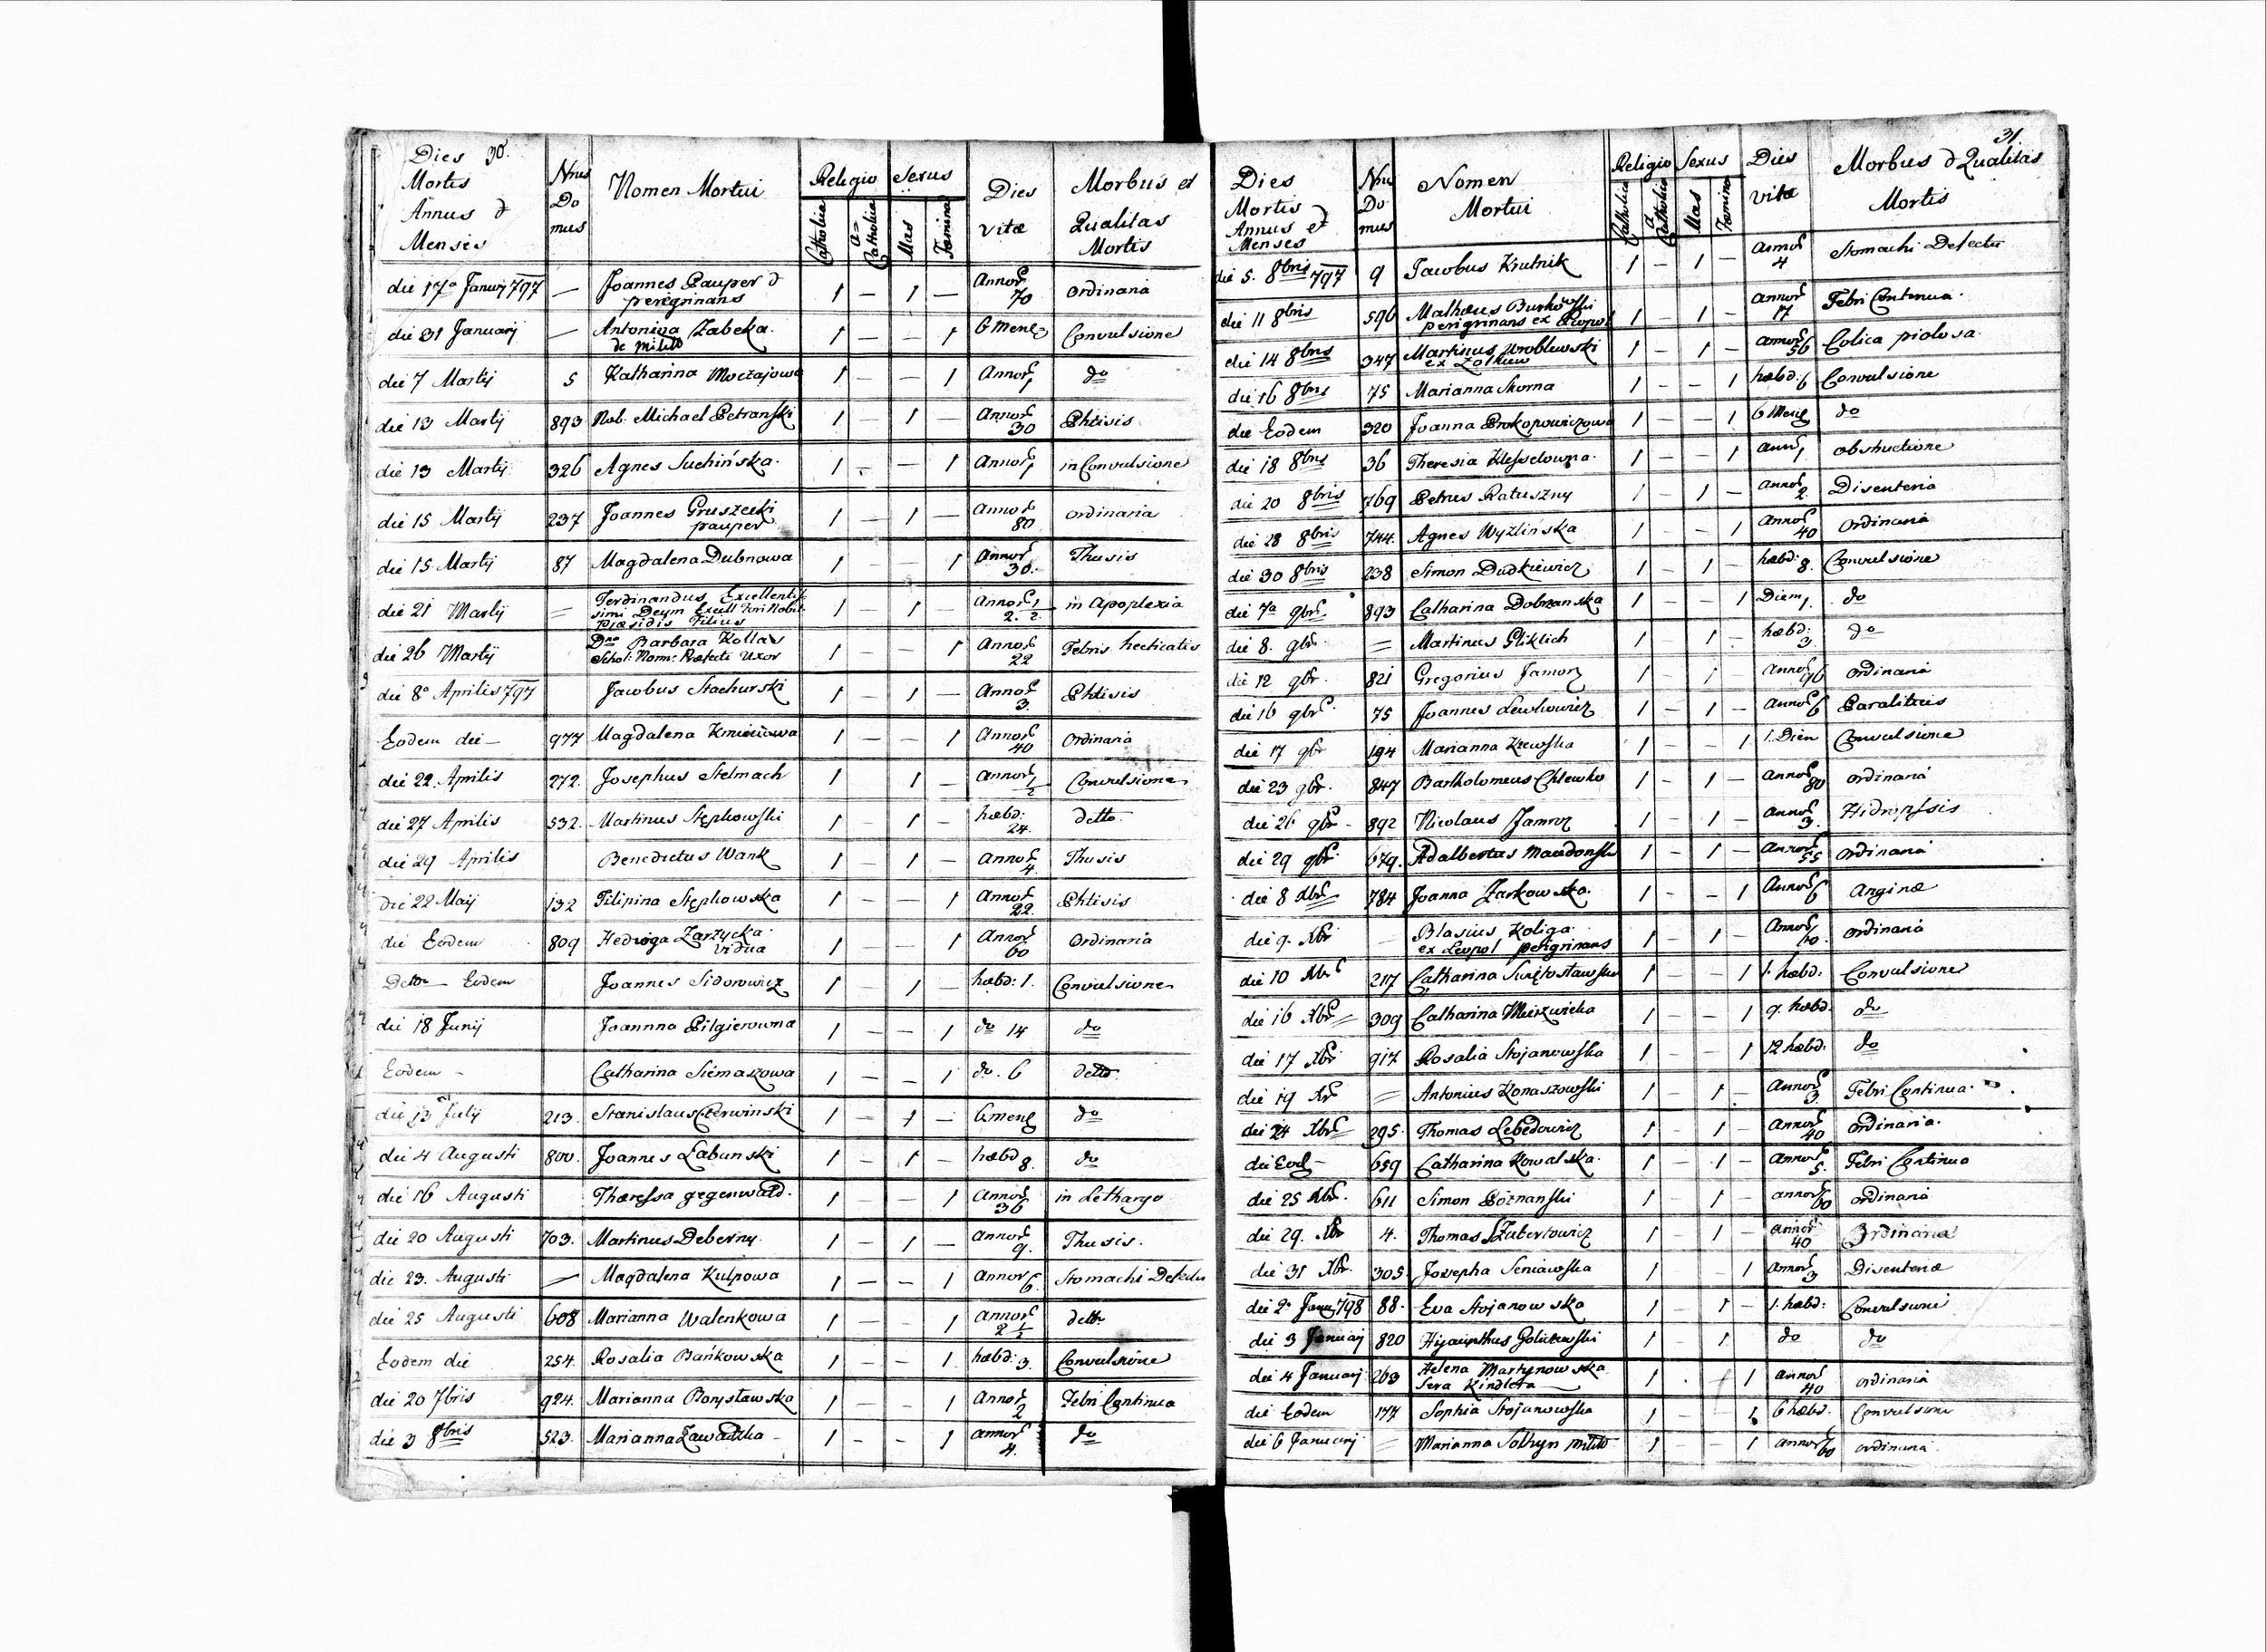 Dies 30.
Mortis
Annus &
Menses
Nrus
Do
mus
Nomen Mortui
Religio
Catholica
a=
Catholica
Sexus
Mas
Fæmina
Dies
vitæ
Morbus et
Qualitas
Mortis
die 17a Januarij 797 — Joannes Pauper &
peregrinans 1 — 1 — Annor 70 ordinaria
die 31 Januarij — Antonina Zabeka
de milite 1 — — 1 6 Mens Convulsione
die 7 Martij 5 Katharina Moczajowa 1 — — 1 Annor 1 do
die 13 Martij 893 Nob. Michael Petranski 1 — 1 — Annor 30 Phtisis
die 13 Martij 326 Agnes Suchińska 1 — — 1 Annor 1 in Convulsione
die 15 Martij 237 Joannes Gruszecki
pauper 1 — 1 — Annor 80 ordinaria
die 15 Martij 87 Magdalena Dubnowa 1 — — 1 Annor 30. Thusis
die 21 Martij = Ferdinandus Excellentis
simi Deym Excell Fori Nobil.
Præsidis Filius 1 — 1 — Annor 2. 1/2 in Apoplexia
die 26 Martij Dna Barbara Kollas
Schol: Norm: Præfecti Uxor 1 — — 1 Annor 22 Febris hecticalis
die 8a Aprilis 797 Jacobus Stachurski 1 — 1 — Annor 3. Phtisis
Eodem die — 977 Magdalena Kmiciowa 1 — — 1 Annor 40 Ordinaria
die 22. Aprilis 272. Josephus Stelmach 1 1 — Annor 1/2 Convulsione
die 27 Aprilis 532. Martinus Stępkowski 1 — 1 — hæbd: 24. detto
die 29 Aprilis Benedictus Wank 1 — 1 — Annor 4. Thusis
die 22 Maij 132 Filipina Stępkowska 1 — — 1 Annor 22. Phtisis
die Eodem 809 Hedwiga Zarzycka
vidua 1 — 1 Annor 60 Ordinaria
Detto Eodem Joannes Sidorowicz 1 — 1 — hæbd: 1. Convulsione
die 18 Junij Joannna Pilgierowna 1 — — 1 do 14 do
Eodem — Catharina Siemaszowa 1 — — 1 do. 6 detto
die 13 Julij 213. Stanislaus Czerwinski 1 — 1 — 6 mens do
die 4 Augusti 800. Joannes Labunski 1 — 1 — hæbd 8. do
die 16 Augusti Thæressa gegenwald. 1 — — 1 Annor 36 in Lethargo
die 20 Augusti 703. Martinus Deberny 1 — 1 — Annor 9. Thusis.
die 23. Augusti — Magdalena Kulpowa 1 — — 1 Annor 6. Stomachi Defectu
die 25 Augusti 608 Marianna Walenkowa 1 — — 1 Annor 2 1/2 detto
Eodem die 254. Rosalia Bańkowska 1 — — 1 hæbd: 3. Convulsione
die 20 7bris 924. Marianna Borysławska 1 — — 1 Annor 2 Febri Continua
die 3 8bris 523. Marianna Zawadzka — 1 — — 1 Annor 4. do
31
Dies
Mortis
Annus et
Menses
Nru
Do
mus
Nomen
Mortui
Religio
Catholica
a
Catholica
Sexus
Mas
Fæmina
Dies
vitæ
Morbus & Qualitas
Mortis
die 5. 8bris 797 9 Jacobus Krutnik 1 — 1 — Annor 4 Stomachi Defectu
die 11 8bris 596 Mathæus Burkowski
perigrinans ex Leopol 1 — 1 — Annor 17 Febri Continua
die 14 8bris 347 Martinus Wroblewski
ex Zolkiew 1 — 1 — Annor 56 Colica piolosa
die 16 8bris 75 Marianna Skorna 1 — — 1 hæbd: 6 Convulsione
die Eodem 320 Joanna Prokopowiczowa 1 — — 1 6 Mens do
die 18 8bris 36 Theresia Klesselowna 1 — — 1 Ann 1 obstructione
die 20 8bris 769 Petrus Ratuszny 1 — 1 — Annor 2. Disenteria
die 28 8bris 744. Agnes Wyzlińska 1 — — 1 Annor 40 Ordinaria
die 30 8bris 238 Simon Dudkiewicz 1 — 1 — hæbd: 8. Convulsione
die 7a 9br. 893 Catharina Dobrzanska 1 — — 1 Diem 1. do
die 8. 9br. = Martinus Gliklich 1 — 1 — hæbd: 3. do
die 12 9br. 821 Gregorius Jamorz 1 — 1 — Annor 96 ordinaria
die 16 9br. 75 Joannes Lewkowicz 1 — 1 — Annor 6 Paraliticus
die 17 9br 194 Marianna Kzewska 1 — — 1 1. Diem Convulsione
die 23 9br. 847 Bartholomeus Chlewko 1 — 1 — Annor 80 ordinaria
die 26 9br — 892 Nicolaus Jamroz 1 — 1 — Annor 3. Hidropsis
die 29 9br 679. Adalbertus Macedonski 1 — 1 — Annor 55 ordinaria
die 8 Xbr 784 Joanna Zarkowska 1 — — 1 Annor 6 Anginæ
die 9. Xbr — Blasius Koliga
ex Leopol perigrinans 1 — 1 — Annor 40. ordinaria
die 10 Xbr 217 Catharina Swiętosławska 1 — — 1 1. hæbd: Convulsione
die 16 Xbr 309 Catharina Mierzwicka 1 — — 1 9. hæbd. do
die 17 Xbr 917 Rosalia Stojanowska 1 — — 1 12 hæbd: do
die 19 Xr = Antonius Konaszowski 1 — 1 — Annor 3. Febri Continua
die 24 Xbr 295. Thomas Lebedowicz 1 — 1 — Annor 40 ordinaria.
die Eod — 659 Catharina Kowalska. 1 — 1 — Annor 5. Febri Continua
die 25 Xbr. 611 Simon Poznanski 1 — 1 — Annor 60 ordinaria
die 29. Xbr 4. Thomas Szubertowicz 1 — 1 — Annor 40 Ordinaria
die 31 Xbr. 305 Josepha Seniawska 1 — 1 Annor 3 Disenteriæ
die 2a Janu 798 88. Eva Stojanowska 1 — 1 — 1. hæbd: Convulsione
die 3 Januarij 820 Hyacinthus Golichowski 1 — 1. do do
die 4 Januarij 263 Helena Martynowska
Sera Kindlera 1 . 1 Annor 40 ordinaria
die Eodem 177 Sophia Stojanowska 1 — — 1. 6 hæbd. Convulsione
die 6 Januarij = Marianna Soltyn milit 1 — — 1 Annor 60 ordinaria